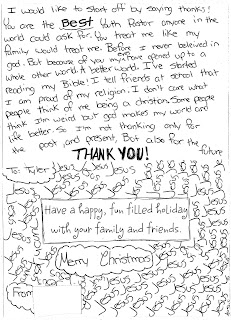 I would like to start off by saying thanks!
You are the BEST Youth Pastor anyone in the
world could ask for. You treat me like my
family would treat me. Before I never beleived in
god. But because of you my have opened up a
whole other world. A better world. I've started
reading my Bible! I tell friends at school that
I am proud of my religion. I don't care what
people think of me being a christian. Some people
think I'm weird but god makes my world and
life better. So I'm not thanking only for
the past, and present, but also for the future
THANK YOU!
To: Tyler
Have a happy, fun filled holiday
with your family and friends.
Merry Christmas
From:
Jesus Jesus Jesus Jesus